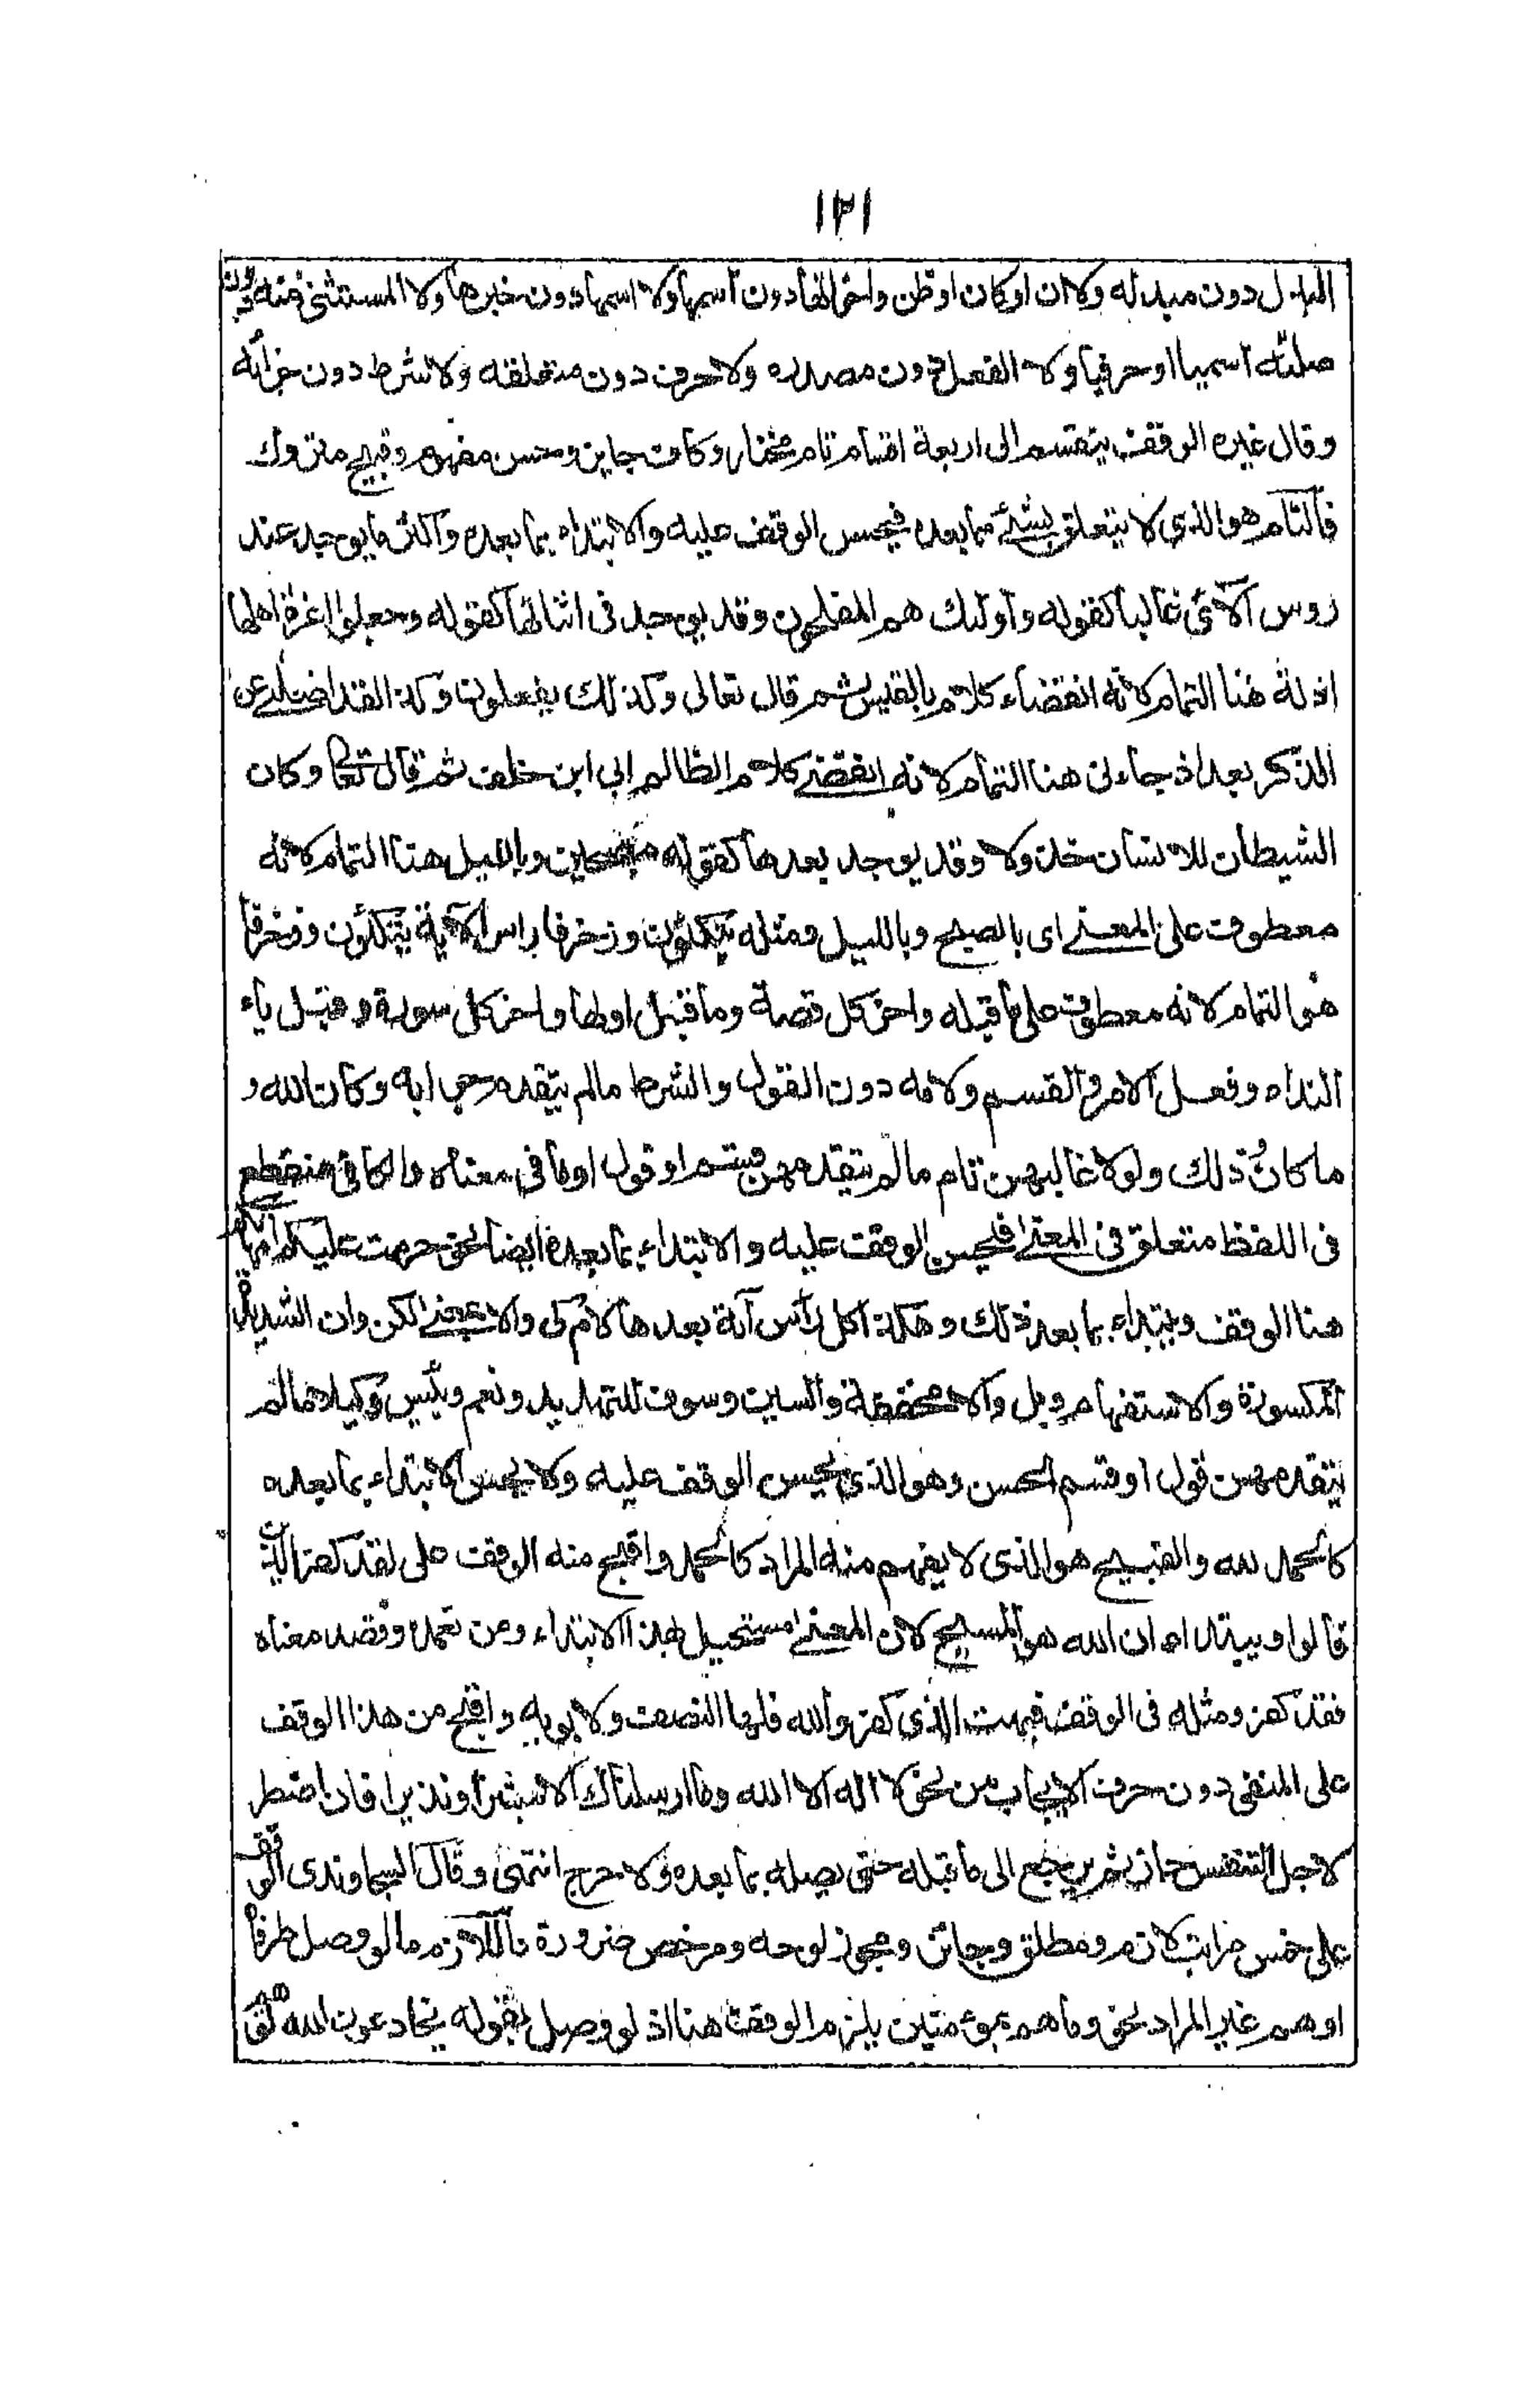 ١٢١
المبدل دون مبدله ولا ان او كان او ظن واخواتها دون اسمها ولا اسمها دون خبرها ولا المستثنى منه دون
صلته اسميا او حرفيا ولا الفعل دون مصدره ولا حرف دون متعلقه ولا شرط دون جزائه
وقال غيره الوقف ينقسم الى اربعة اقسام تام مختار وكاف جايز وحسن مفهوم وقبيح متروك
فالتام هو الذي لا يتعلق بشئ مما بعده فيحسن الوقف عليه والابتداء بما بعده واكثر ما يوجد عند
روس الآى غالبا كقوله واولئك هم المفلحون وقد يوجد فى اثنائها كقوله وجعلوا اعزة اهلها
اذلة هنا التمام لانه انقضاء كلام بلقيس ثم قال تعالى وكذلك يفعلون وكذا لقد اضلنى عن
الذكر بعد اذ جاءنى هنا التمام لانه انقضى كلام الظالم ابي ابن خلف ثم قال تعالى وكان
الشيطان للانسان خذولا وقد يوجد بعدها كقوله مصبحين وبالليل هنا التمام لانه
معطوف على المعنى اى بالصبح وبالليل ومثله يتكئون وزخرفا راس الآية يتكئون وزخرفا
هو التمام لانه معطوف على ما قبله واخر كل قصة وما قبل اولها واخر كل سورة وقبل ياء
النداء وفعل الامر والقسم ولامه دون القول والشرط ما لم يتقدم جوابه وكان الله و
ما كان ذلك ولولا غالبهن تام ما لم يتقدمهن قسم او قول او ما فى معناه والكافى منقطع
فى اللفظ متعلق فى المعنى فيحسن الوقف عليه والابتداء بما بعده ايضا نحو حرمت عليكم امهاتكم
هنا الوقف ويبتداء بما بعد ذلك وهكذا كل راس آية بعدها لام كى والا بمعنى لكن وان الشديدة
المكسورة والاستفهام وبل والا المخففة والسين وسوف للتهديد ونعم وبئس وكيلا ما لم
يتقدمهن قول او قسم الحسن وهو الذي يحسن الوقف عليه ولا يحسن الابتداء بما بعده
كالحمد لله والقبيح هو الذى لا يفهم منه المراد كالحمد واقبح منه الوقف على لقد كفر الذين
قالوا ويبتداء ان الله هو المسيح لان المعنى مستحيل بهذا الابتداء ومن تعمده وقصد معناه
فقد كفر ومثله فى الوقف فبهت الذى كفر والله فلها النصف ولابويه واقبح من هذا الوقف
على المنفى دون حرف الايجاب من نحو لا اله الا الله وما ارسلناك الا مبشرا ونذيرا فان اضطر
لاجل التنفس جاز ثم يرجع الى ما قبله حتى يصله بما بعده ولا حرج انتهى وقال السجاوندى الوقف
على خمس مراتب لازم ومطلق وجائز ومجوز لوجه ومرخص ضرورة فاللازم ما لو وصل طرفاه
اوهم غير المراد نحو وما هم بمؤمنين يلزم الوقف هنا اذ لو وصل بقوله يخادعون الله توهم